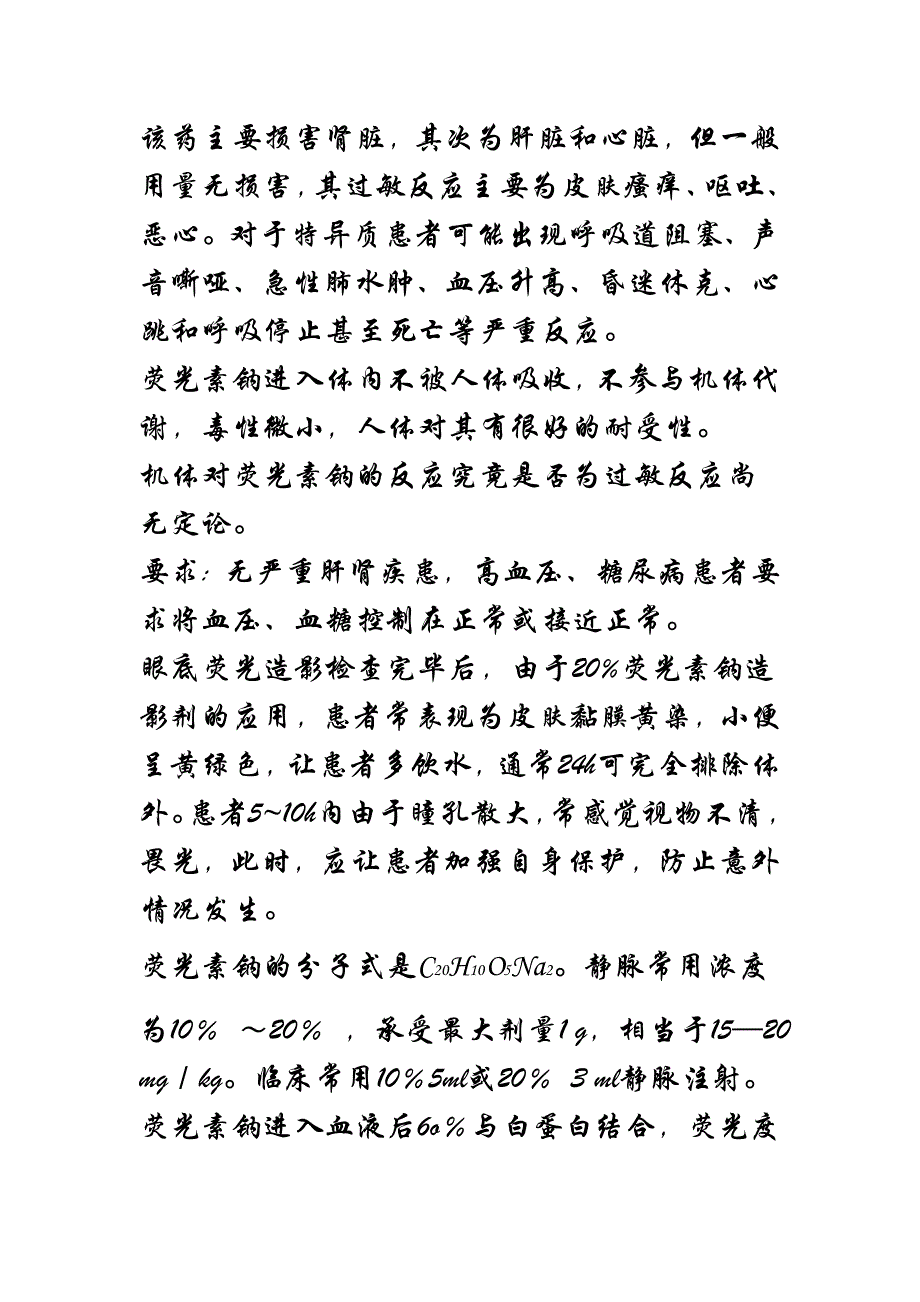 该药主要损害肾脏，其次为肝脏和心脏，但一般
用量无损害，其过敏反应主要为皮肤瘙痒、呕吐、
恶心。对于特异质患者可能出现呼吸道阻塞、声
音嘶哑、急性肺水肿、血压升高、昏迷休克、心
跳和呼吸停止甚至死亡等严重反应。
荧光素钠进入体内不被人体吸收，不参与机体代
谢，毒性微小，人体对其有很好的耐受性。
机体对荧光素钠的反应究竟是否为过敏反应尚
无定论。
要求：无严重肝肾疾患，高血压、糖尿病患者要
求将血压、血糖控制在正常或接近正常。
眼底荧光造影检查完毕后，由于20%荧光素钠造
影剂的应用，患者常表现为皮肤黏膜黄染，小便
呈黄绿色，让患者多饮水，通常24h可完全排除体
外。患者5~10h内由于瞳孔散大，常感觉视物不清，
畏光，此时，应让患者加强自身保护，防止意外
情况发生。
荧光素钠的分子式是C20H10O5Na2。静脉常用浓度
为10％ ～20％ ，承受最大剂量1 g，相当于15—20
mg / kg。临床常用10％5ml或20％ 3 ml静脉注射。
荧光素钠进入血液后6o％与白蛋白结合，荧光度